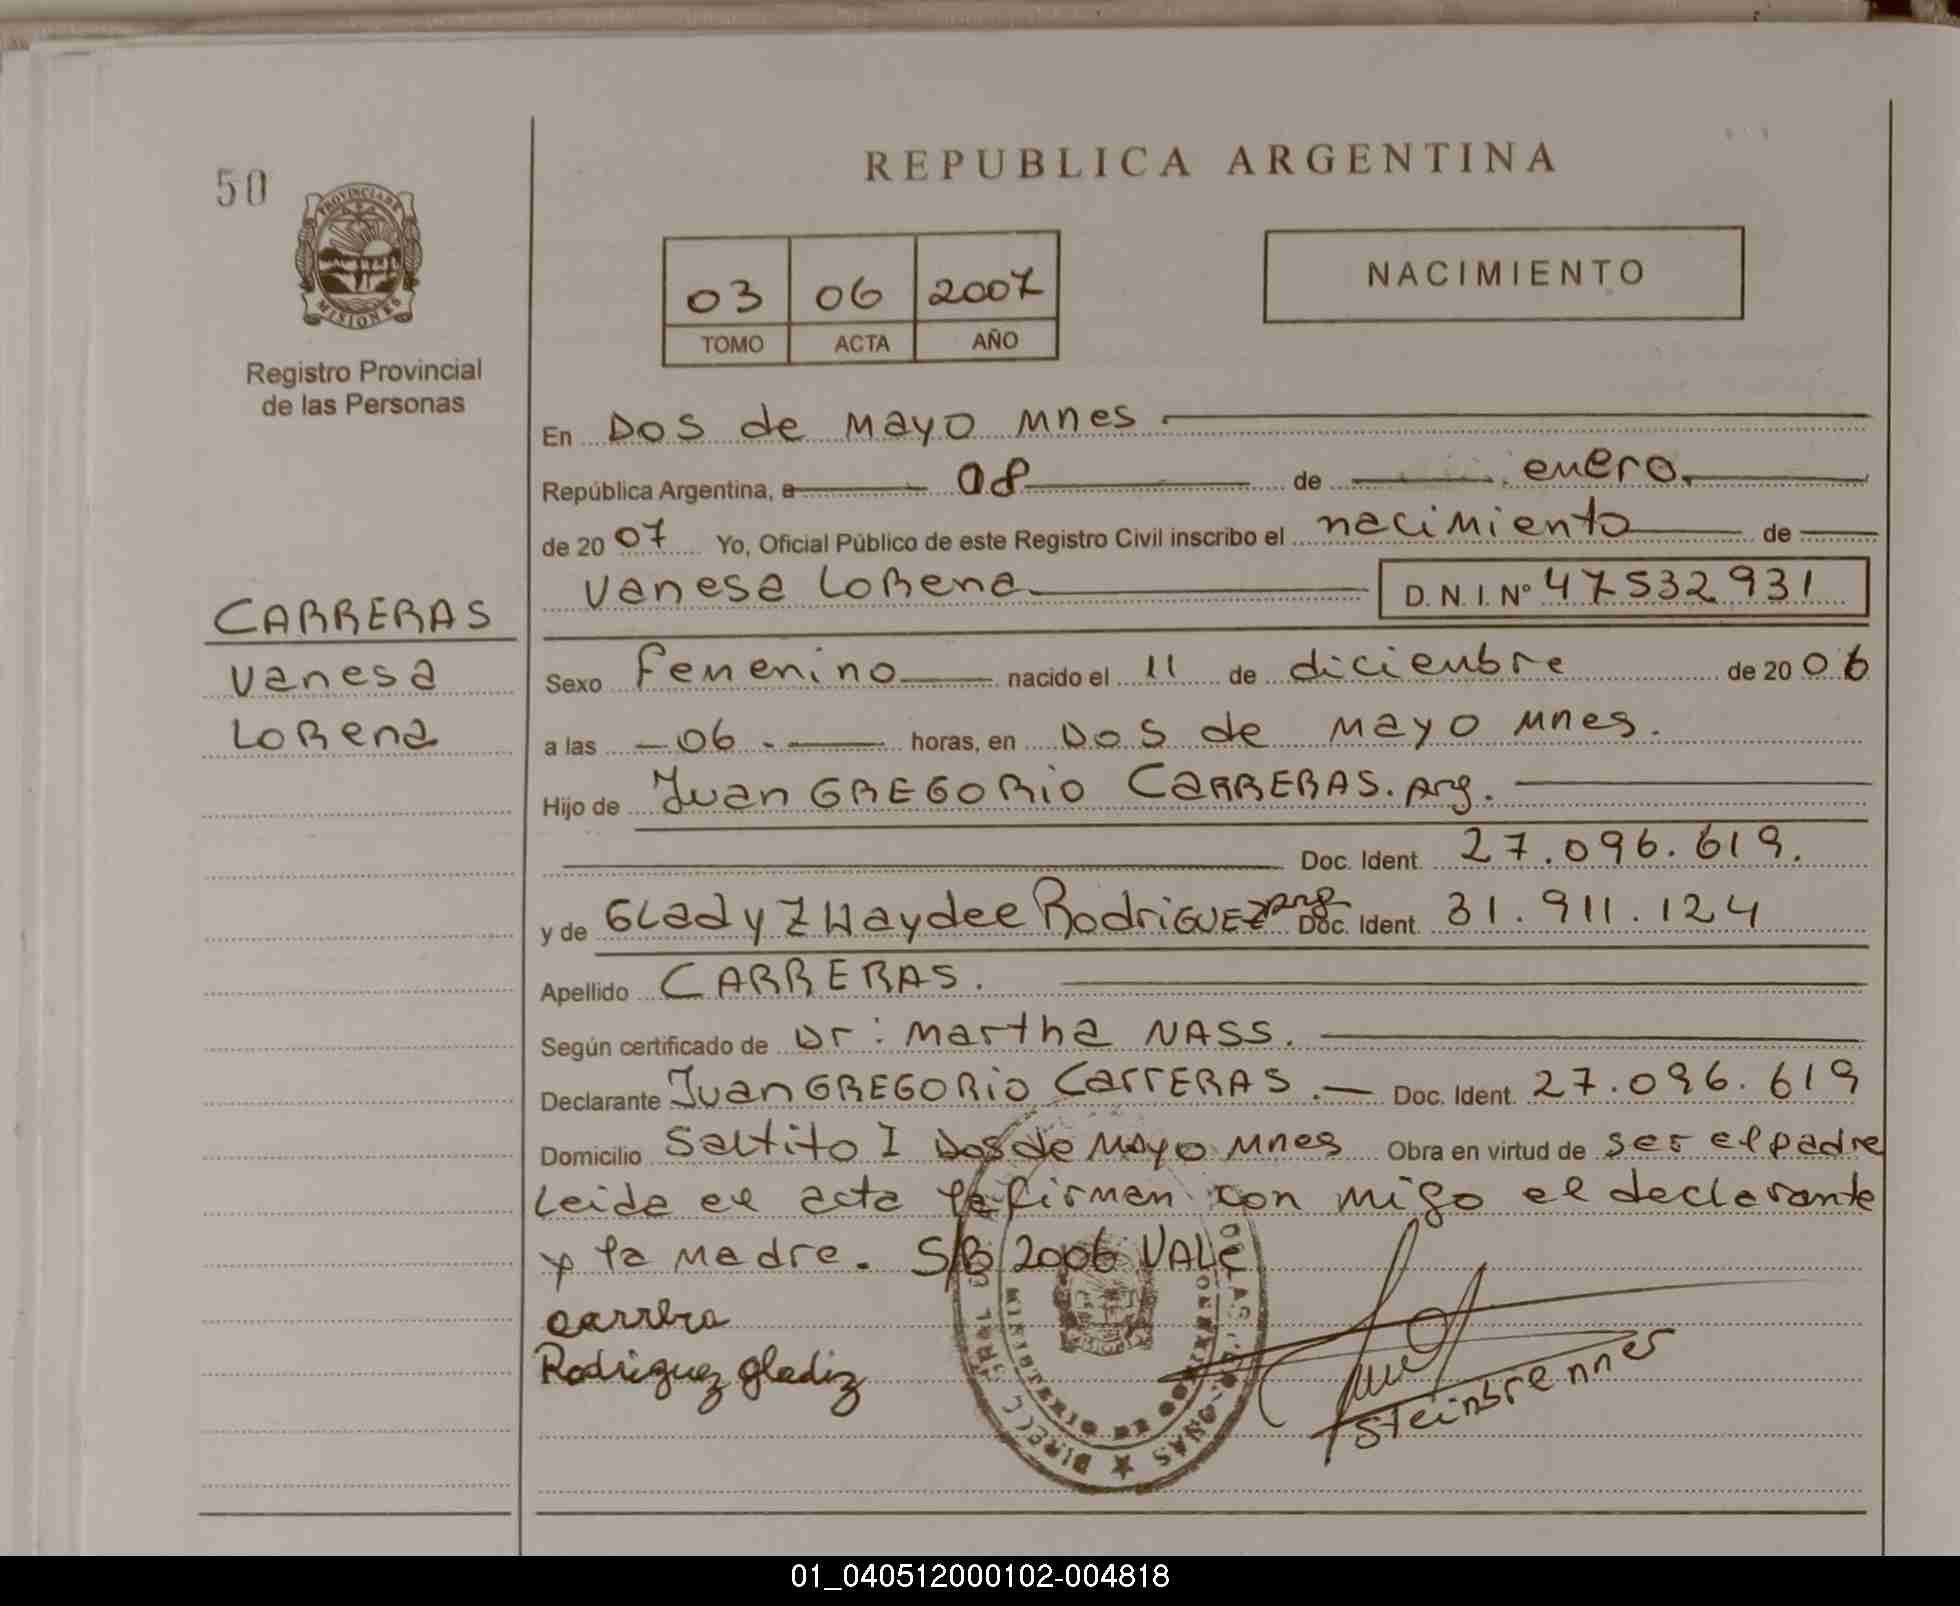 50
REPUBLICA ARGENTINA
PROVINCIA DE
MISIONES
Registro Provincial
de las Personas
03 06 2007
TOMO ACTA AÑO
NACIMIENTO
En Dos de Mayo Mnes
República Argentina, a 08 de enero
de 2007 Yo, Oficial Público de este Registro Civil inscribo el nacimiento de
Vanesa Lorena D.N.I. Nº 47532931
CARRERAS
Vanesa
Lorena
Sexo Femenino nacido el 11 de diciembre de 2006
a las 06 horas, en Dos de Mayo Mnes.
Hijo de Juan GREGORio CARRERAS. Arg.
Doc. Ident. 27.096.619.
y de Gladyz Haydee RodriGUEZ Arg Doc. Ident. 31.911.124
Apellido CARRERAS.
Según certificado de Dr: Martha NASS.
Declarante Juan GREGORio CarrERAS. Doc. Ident. 27.096.619
Domicilio Saltito I Dos de Mayo Mnes Obra en virtud de ser el padre
Leida el acta la firman con migo el declarante
y la madre. S/B 2006 VALE
carrera
Rodriguez gladiz
Steinbrenner
01_040512000102-004818